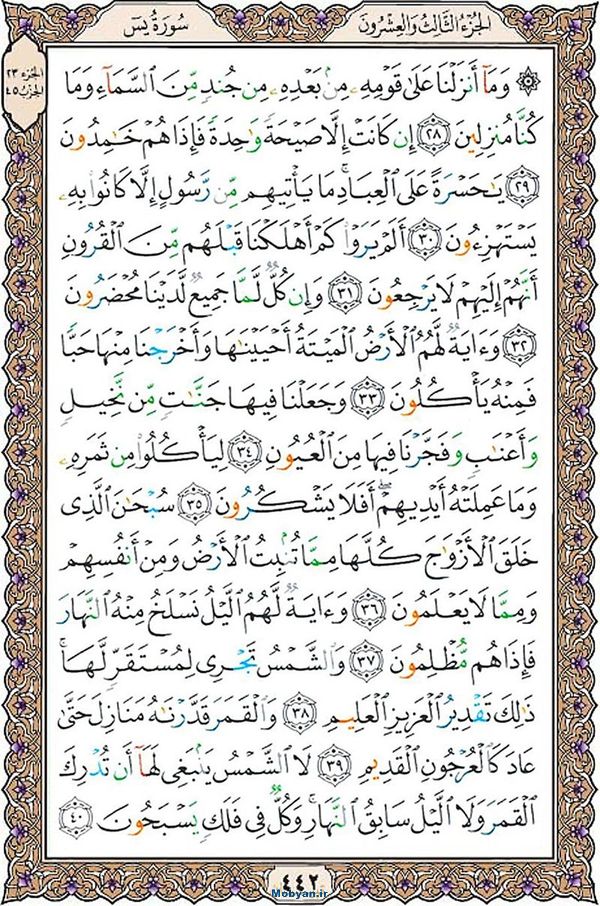 الجُزءُ الثَّالِثُ وَالعِشرُونَ
سُورَةُ يسٓ
الجزء ٢٣
الحزب ٤٥
۞ وَمَآ أَنزَلۡنَا عَلَىٰ قَوۡمِهِۦ مِنۢ بَعۡدِهِۦ مِن جُندٖ مِّنَ ٱلسَّمَآءِ وَمَا
كُنَّا مُنزِلِينَ ٢٨ إِن كَانَتۡ إِلَّا صَيۡحَةٗ وَٰحِدَةٗ فَإِذَا هُمۡ خَٰمِدُونَ
٢٩ يَٰحَسۡرَةً عَلَى ٱلۡعِبَادِۚ مَا يَأۡتِيهِم مِّن رَّسُولٍ إِلَّا كَانُواْ بِهِۦ
يَسۡتَهۡزِءُونَ ٣٠ أَلَمۡ يَرَوۡاْ كَمۡ أَهۡلَكۡنَا قَبۡلَهُم مِّنَ ٱلۡقُرُونِ
أَنَّهُمۡ إِلَيۡهِمۡ لَا يَرۡجِعُونَ ٣١ وَإِن كُلّٞ لَّمَّا جَمِيعٞ لَّدَيۡنَا مُحۡضَرُونَ
٣٢ وَءَايَةٞ لَّهُمُ ٱلۡأَرۡضُ ٱلۡمَيۡتَةُ أَحۡيَيۡنَٰهَا وَأَخۡرَجۡنَا مِنۡهَا حَبّٗا
فَمِنۡهُ يَأۡكُلُونَ ٣٣ وَجَعَلۡنَا فِيهَا جَنَّٰتٖ مِّن نَّخِيلٖ
وَأَعۡنَٰبٖ وَفَجَّرۡنَا فِيهَا مِنَ ٱلۡعُيُونِ ٣٤ لِيَأۡكُلُواْ مِن ثَمَرِهِۦ
وَمَا عَمِلَتۡهُ أَيۡدِيهِمۡۚ أَفَلَا يَشۡكُرُونَ ٣٥ سُبۡحَٰنَ ٱلَّذِي
خَلَقَ ٱلۡأَزۡوَٰجَ كُلَّهَا مِمَّا تُنۢبِتُ ٱلۡأَرۡضُ وَمِنۡ أَنفُسِهِمۡ
وَمِمَّا لَا يَعۡلَمُونَ ٣٦ وَءَايَةٞ لَّهُمُ ٱلَّيۡلُ نَسۡلَخُ مِنۡهُ ٱلنَّهَارَ
فَإِذَا هُم مُّظۡلِمُونَ ٣٧ وَٱلشَّمۡسُ تَجۡرِي لِمُسۡتَقَرّٖ لَّهَاۚ
ذَٰلِكَ تَقۡدِيرُ ٱلۡعَزِيزِ ٱلۡعَلِيمِ ٣٨ وَٱلۡقَمَرَ قَدَّرۡنَٰهُ مَنَازِلَ حَتَّىٰ
عَادَ كَٱلۡعُرۡجُونِ ٱلۡقَدِيمِ ٣٩ لَا ٱلشَّمۡسُ يَنۢبَغِي لَهَآ أَن تُدۡرِكَ
ٱلۡقَمَرَ وَلَا ٱلَّيۡلُ سَابِقُ ٱلنَّهَارِۚ وَكُلّٞ فِي فَلَكٖ يَسۡبَحُونَ ٤٠
٤٤٢
Mobyan.ir